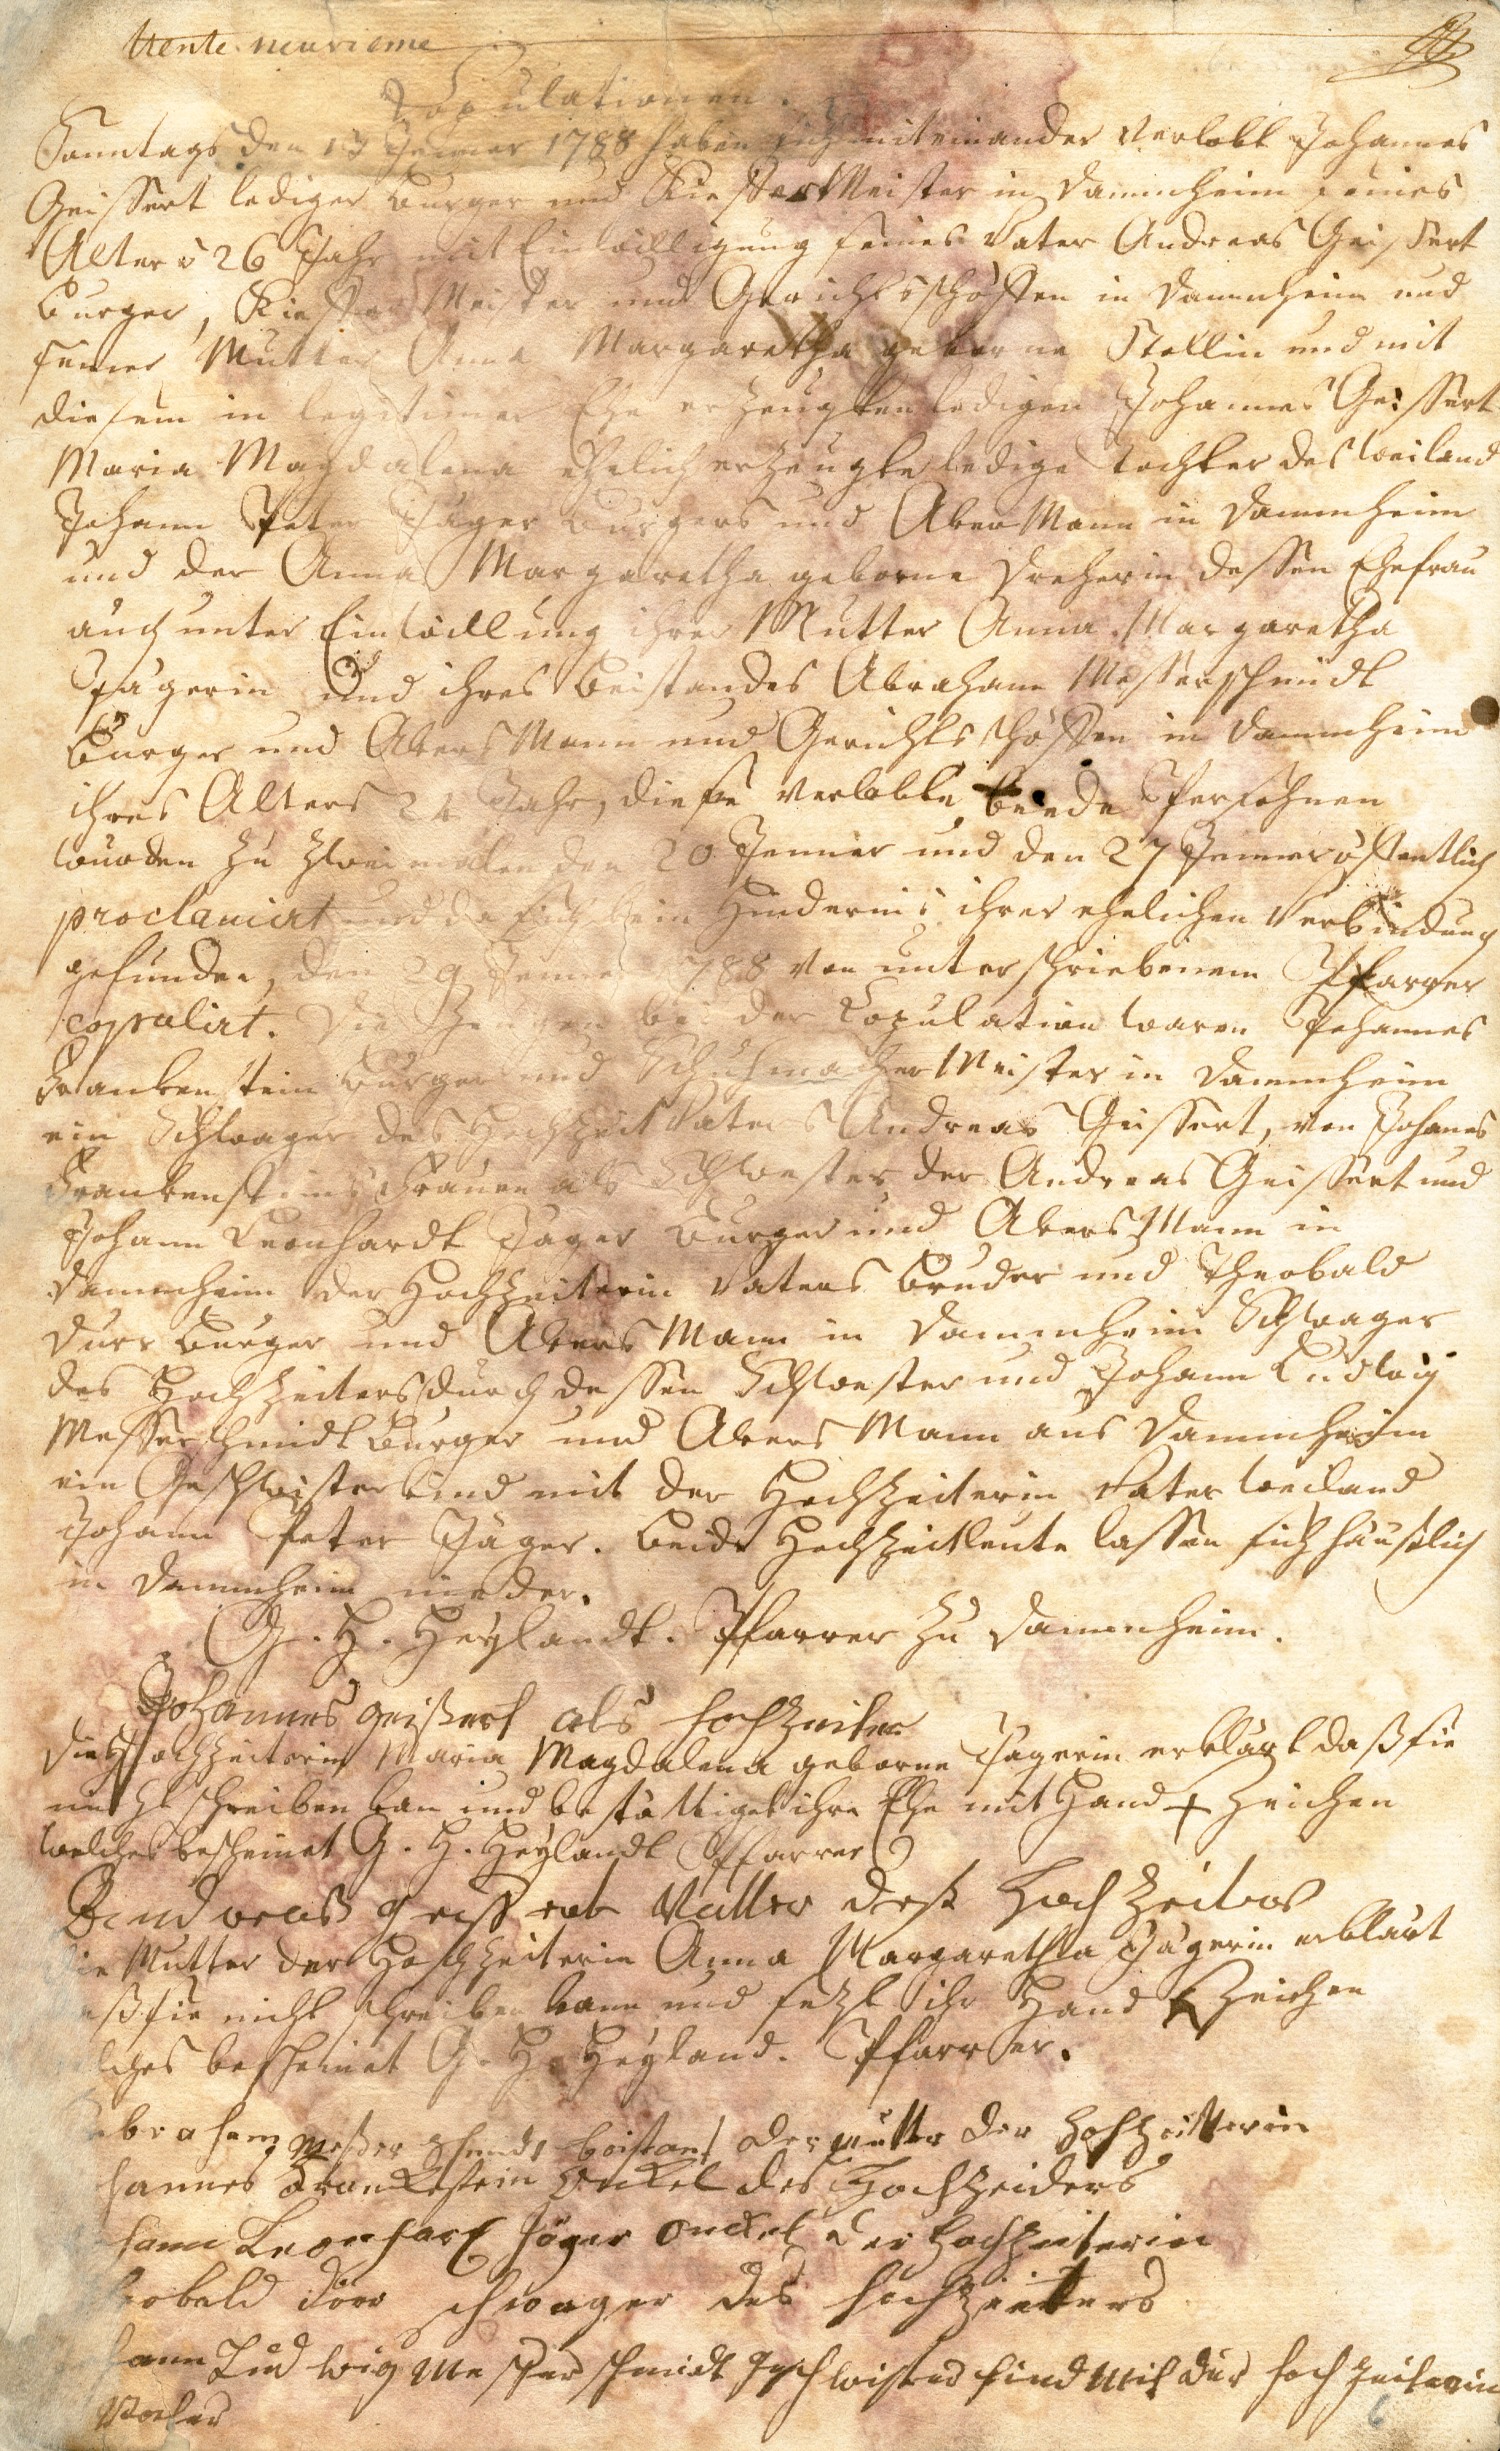 trente neuvieme
Copulationen.
Sonntags den 13 Jenner 1788 haben sich miteinander verlobt Johannes
Geissert lediger Burger und Kieffer Meister in Dammheim seines
Alters 26 Jahr mit Einwilligung seines Vater Andreas Geissert
Burger, Kieffer Meister und Gerichtsschöffen in Dammheim und
seiner Mutter Anna Margaretha geborne Stollin und mit
diesem in legitimer Ehe erzeugten ledigen Johannes Geissert
Maria Magdalena ehelich erzeugte ledige Tochter des weiland
Johann Peter Jäger Burgers und Akers Mann in Dammheim
und der Anna Margaretha geborne Dreherin dessen Ehefrau
auch unter Einwillung ihrer Mutter Anna Margaretha
Jägerin und ihres Beistandes Abraham Messerschmidt
Burger und Akers Mann und Gerichtsschöffen in Dammheim
ihres Alters Jahr, diese verlobte beede Persohnen
wurden zu zweimalen den 20 Jenner und den 27 Jenner öffentlich
proclamirt und da sich kein Hindernis ihrer ehelichen Verbindung
gefunden, den 29 Jenner 1788 von unterschriebenem Pfarrer
copulirt. Die Zeugen bei der Copulation waren Johannes
Frankenstein Burger und Schuhmacher Meister in Dammheim
ein Schwager des Hochzeit Vaters Andreas Geissert, von Johannes
Frankensteins Frauen als Schwester der Andreas Geissert und
Johann Leonhardt Jäger Burger und Akers Mann in
Dammheim der Hochzeiterin Vaters Bruder und Theobald
Durr Burger und Akers Mann in Dammheim Schwager
des Hochzeiters durch dessen Schwester und Johann Ludwig
Messerschmidt Burger und Akers Mann aus Dammheim
ein Geschwisterkind mit der Hochzeiterin Vater weiland
Johann Peter Jäger. Beide Hochzeitleute lassen sich häuslich
in Dammheim nieder.
G. H. Heylandt. Pfarrer zu Dammheim.
Johannes geißert als hochzeiter
Die Hochzeiterin Maria Magdalena geborne Jägerin erklärt daß sie
nicht schreiben kan und bestättiget ihre Ehe mit Hand + Zeichen
welches bescheinet G. H. Heylandt Pfarrer
Andreas geissert Vatter deß Hoch Zeiters
die Mutter der Hochzeiterin Anna Margaretha Jägerin erklärt
daß sie nicht schreiben kann und setzt ihr Hand + Zeichen
welches bescheinet G. H. Heyland. Pfarrer.
abraham Meßer schmidt beistant der mutter der Hochzeitterin
hannes Franckestein Onckel des Hochzeiders
hann Leonhart Jäger onckel der hochzeiterin
eobald dörr schwager des hochzeiters
hann Ludwig Messerschmidt geschwister kind mit der hoch zeiterin
Vater
6